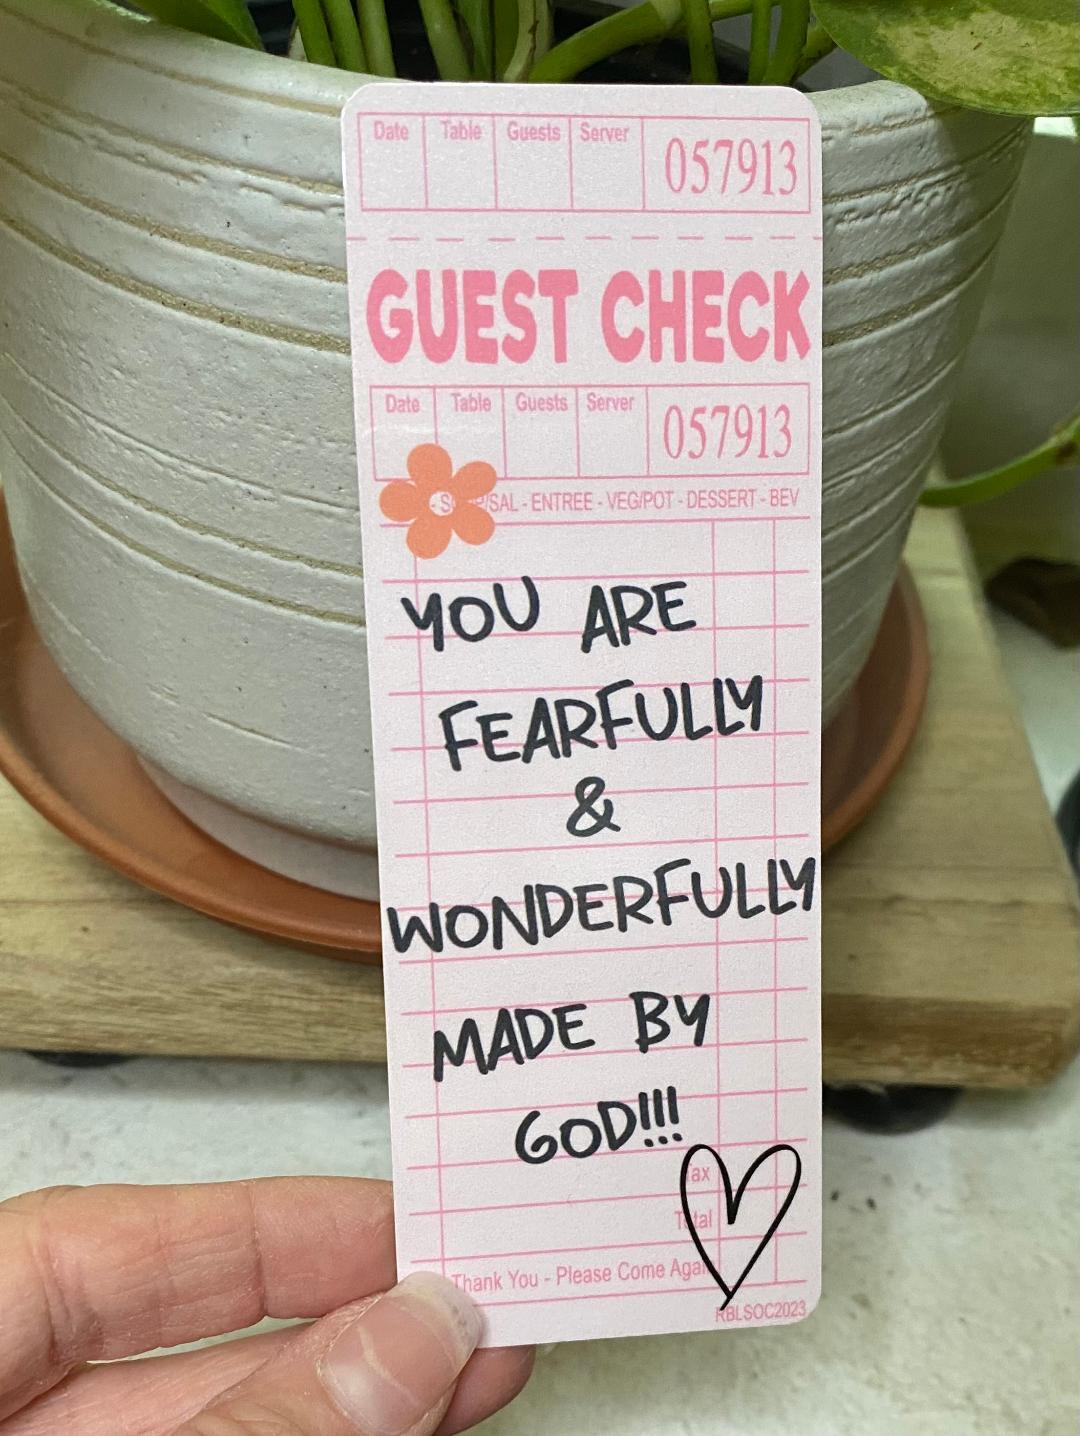 Date Table Guests Server 057913
GUEST CHECK
Date Table Guests Server 057913
/SAL - ENTREE - VEG/POT - DESSERT - BEV
YOU ARE
FEARFULLY
&
WONDERFULLY
MADE BY
GOD!!!
Tax
Total
Thank You - Please Come Again
RBLSOC2023